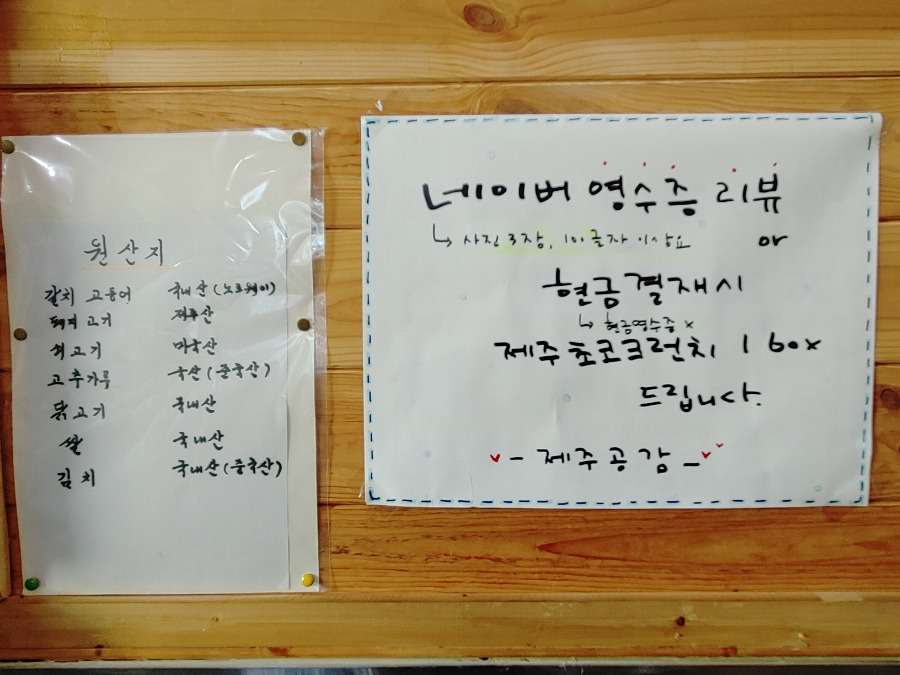 원산지
갈치 고등어 국내산(노르웨이)
돼지고기 제주산
쇠고기 미국산
고추가루 국산(중국산)
닭고기 국내산
쌀 국내산
김치 국내산(중국산)
네이버 영수증 리뷰
↳ 사진 3장, 10글자 이상요 or
현금결재시
↳ 현금영수증 x
제주초코크런치 1 box
드립니다.
- 제주공감 -